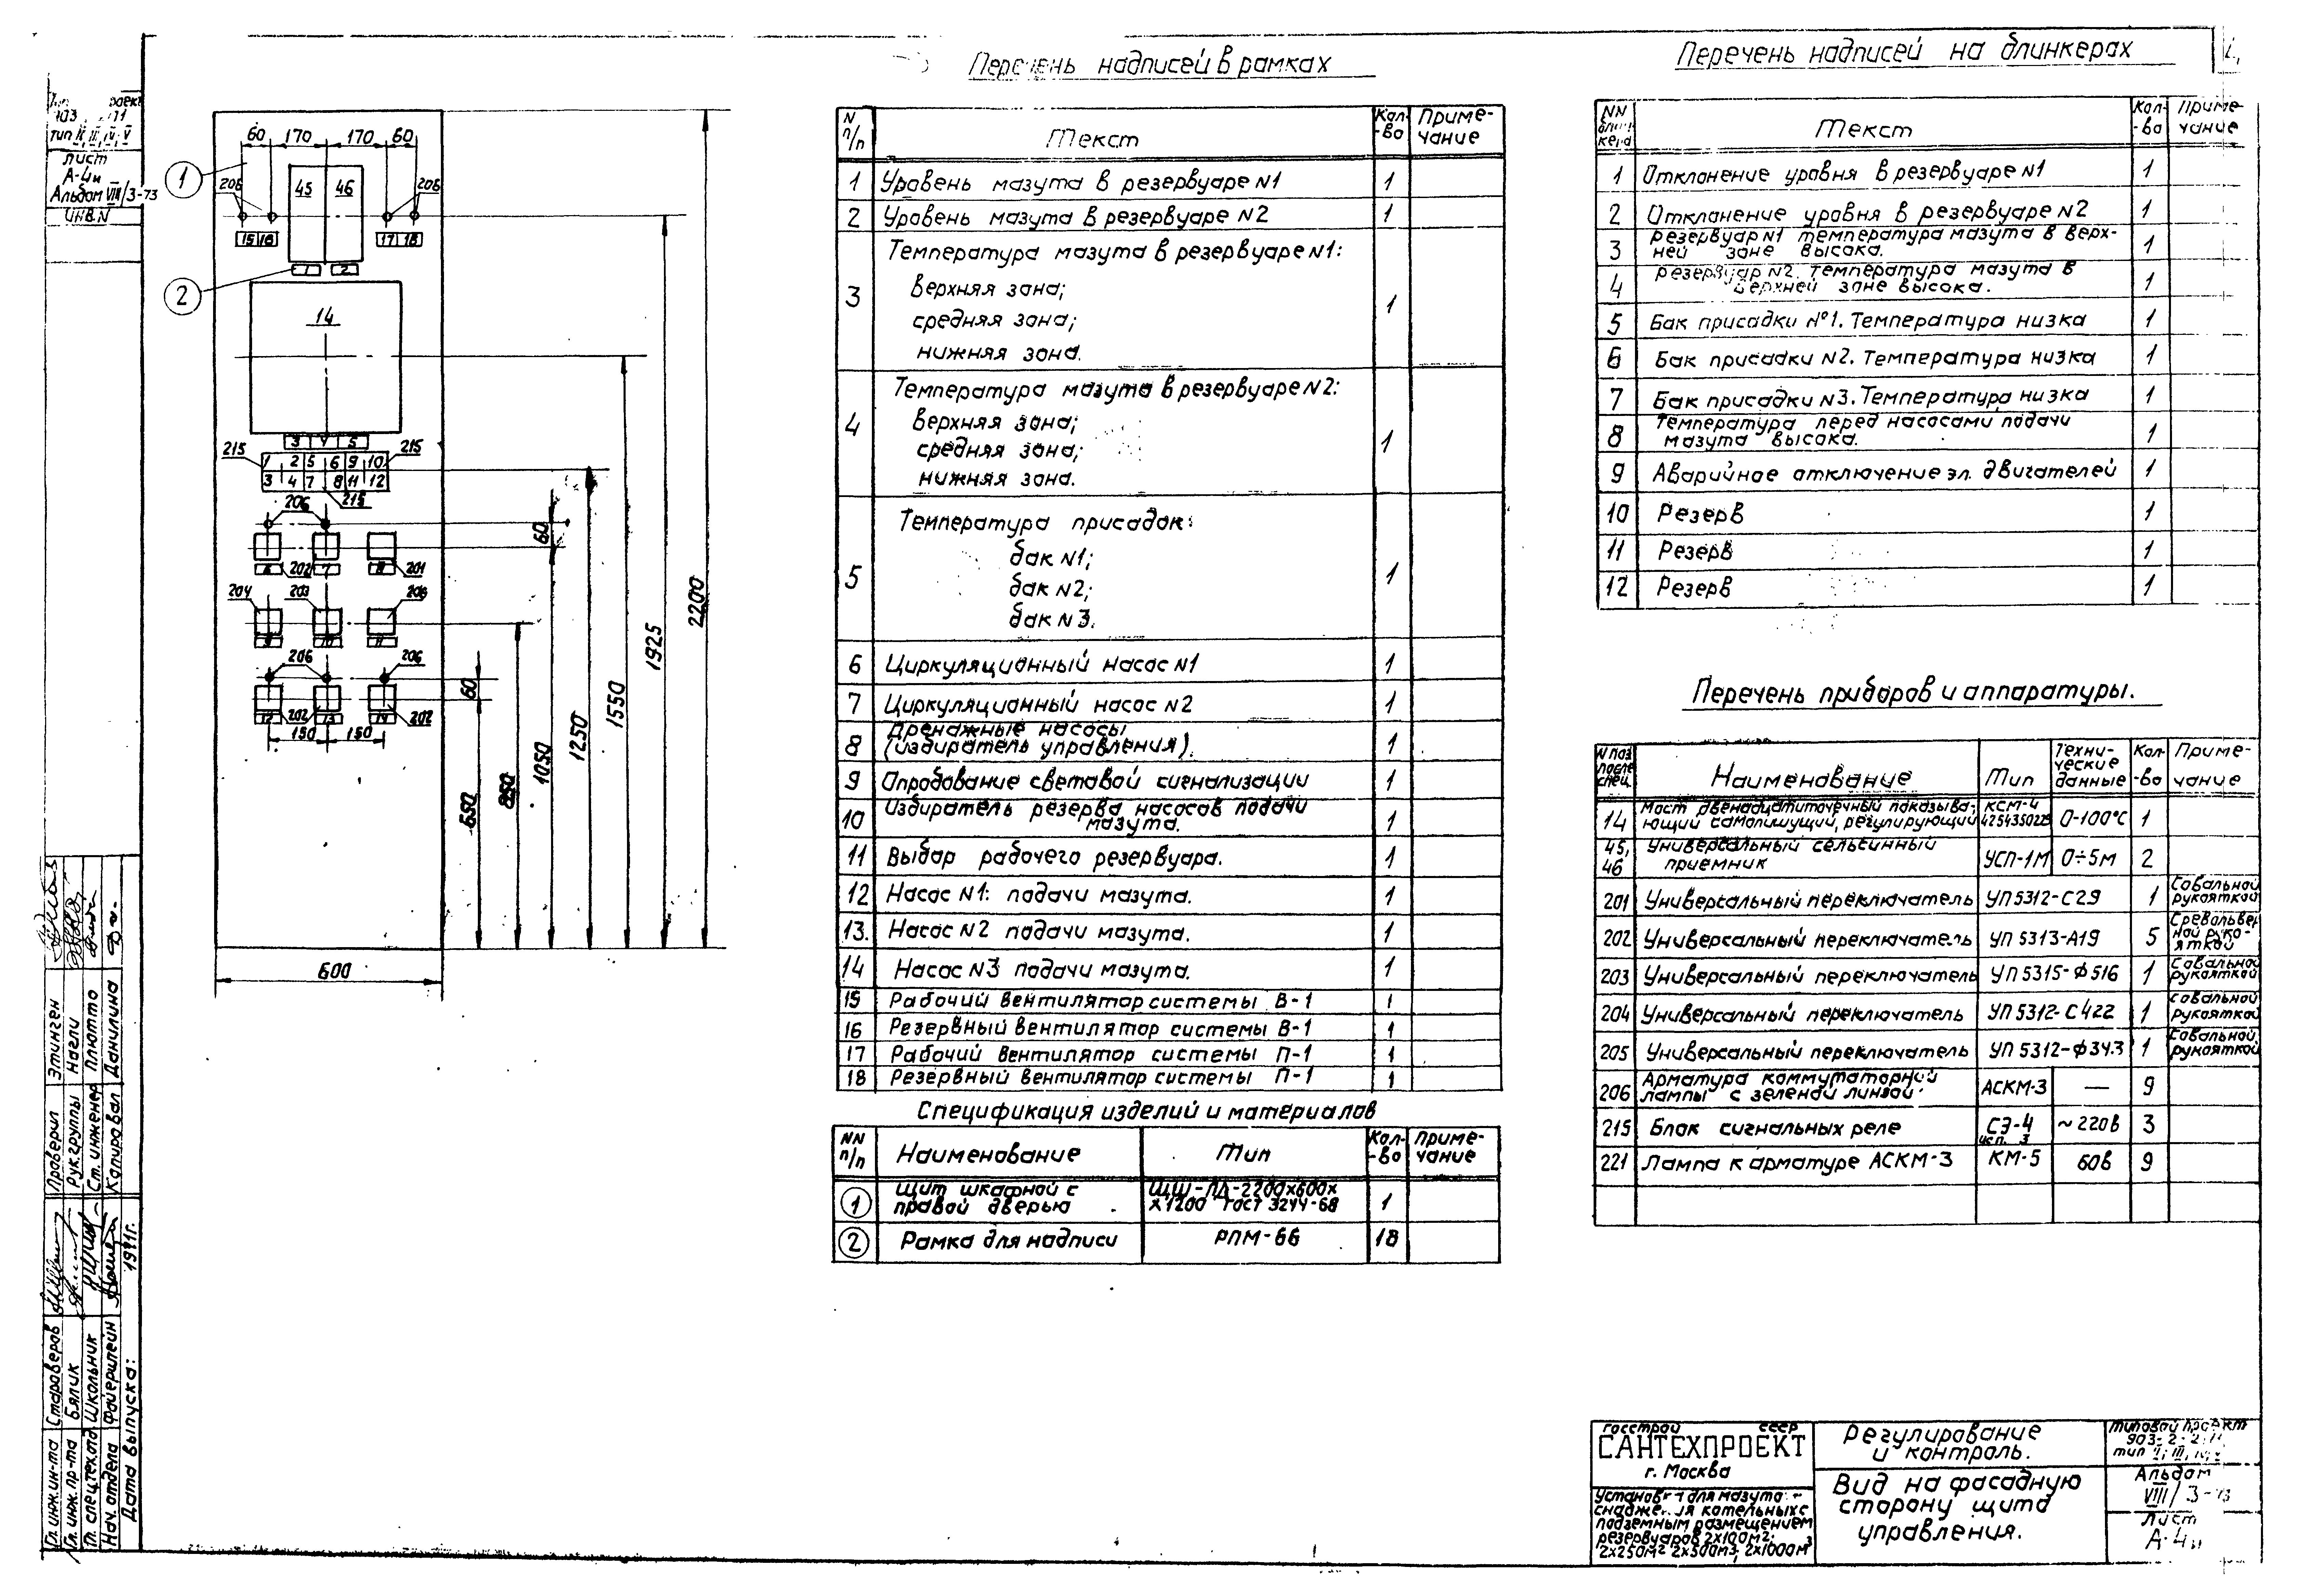 Перечень надписей в рамках
N п/п Текст Кол-во Примечание
1 Уровень мазута в резервуаре N1 1
2 Уровень мазута в резервуаре N2 1
3 Температура мазута в резервуаре N1: 1
верхняя зона;
средняя зона;
нижняя зона.
4 Температура мазута в резервуаре N2: 1
верхняя зона;
средняя зона;
нижняя зона.
5 Температура присадок: 1
бак N1;
бак N2;
бак N3.
6 Циркуляционный насос N1 1
7 Циркуляционный насос N2 1
8 Дренажные насосы
(избиратель управления). 1
9 Опробование световой сигнализации 1
10 Избиратель резерва насосов подачи
мазута. 1
11 Выбор рабочего резервуара. 1
12 Насос N1: подачи мазута. 1
13. Насос N2 подачи мазута. 1
14 Насос N3 подачи мазута. 1
15 Рабочий вентилятор системы В-1 1
16 Резервный вентилятор системы В-1 1
17 Рабочий вентилятор системы П-1 1
18 Резервный вентилятор системы П-1 1
Спецификация изделий и материалов
NN п/п Наименование Тип Кол-во Примечание
1 Щит шкафной с ЩШ-ПД-2200х600х
правой дверью х1200 ГОСТ 3244-68 1
2 Рамка для надписи РПМ-66 18
Перечень надписей на блинкерах
NN блинкера Текст Кол-во Примечание
1 Отклонение уровня в резервуаре N1 1
2 Отклонение уровня в резервуаре N2 1
3 резервуар N1 температура мазута в верх-
ней зоне высока. 1
4 резервуар N2. Температура мазута в
верхней зоне высока. 1
5 Бак присадки N°1. Температура низка 1
6 Бак присадки N2. Температура низка 1
7 Бак присадки N3. Температура низка 1
8 Температура перед насосами подачи
мазута высока. 1
9 Аварийное отключение эл. двигателей 1
10 Резерв 1
11 Резерв 1
12 Резерв 1
Перечень приборов и аппаратуры.
N поз. после спец. Наименование Тип Технические данные Кол-во Примечание
14 Мост двенадцатиточечный показыва- КСМ-4
ющий самопишущий, регулирующий 0-100°С 1
45, Универсальный сельсинный
46 приемник УСП-1М 0÷5м 2
201 Универсальный переключатель УП5312-С29 1 С овальной рукояткой
202 Универсальный переключатель УП 5313-А19 5 С револьверной рукояткой
203 Универсальный переключатель УП5315-Ф516 1 С овальной рукояткой
204 Универсальный переключатель УП5312-С422 1 С овальной рукояткой
205 Универсальный переключатель УП 5312-Ф343 1 С овальной рукояткой
206 Арматура коммутаторной
лампы с зеленой линзой АСКМ-3 — 9
215 Блок сигнальных реле СЭ-4 исп. 3 ~220в 3
221 Лампа к арматуре АСКМ-3 КМ-5 60в 9
60 170 170 60
1
206 45 46 206
15 16 17 18
1 2
2
14
3 4 5
215 1 2 5 6 9 10 215
3 4 7 8 11 12
215
206
60
6 202 7 8 201
204 203
9 10 11
206 206
60
12 202 13 14 202
150 150
650 850 1050 1250 1550 1925 2200
600
тип II, III, IV, V
лист
А-4и
Альбом VIII/3-73
ИНВ.N
Проверил Этинген
Рук.группы Нагли
Ст. инженер Плютто
Копировал Данилина
Гл. инж. ин-та Староверов
Гл. инж. пр-та Бялик
Гл. спец. тех. отд. Школьник
Нач. отдела Файерштейн
Дата выпуска: 1971г.
госстрой СССР
САНТЕХПРОЕКТ
г. Москва
Установки для мазуто-
снабжения котельных с
подземным размещением
резервуаров 2х100м²;
2х250м² 2х500м³; 2х1000м³
Регулирование
и контроль.
Вид на фасадную
сторону щита
управления.
типовой проект
Альбом
VIII/3-73
Лист
А-4и